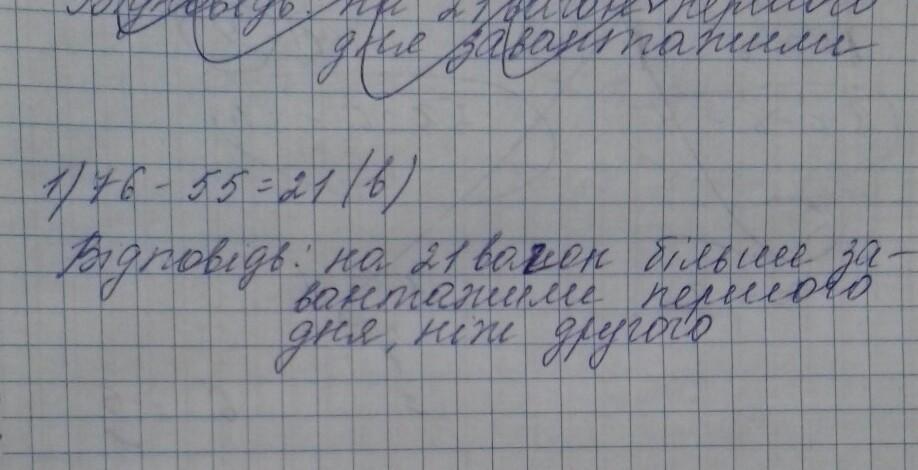 Відповідь: на 21 вагон першого
дня завантажили
1) 76 - 55 = 21 (в)
Відповідь: на 21 вагон більше за-
вантажили першого
дня, ніж другого